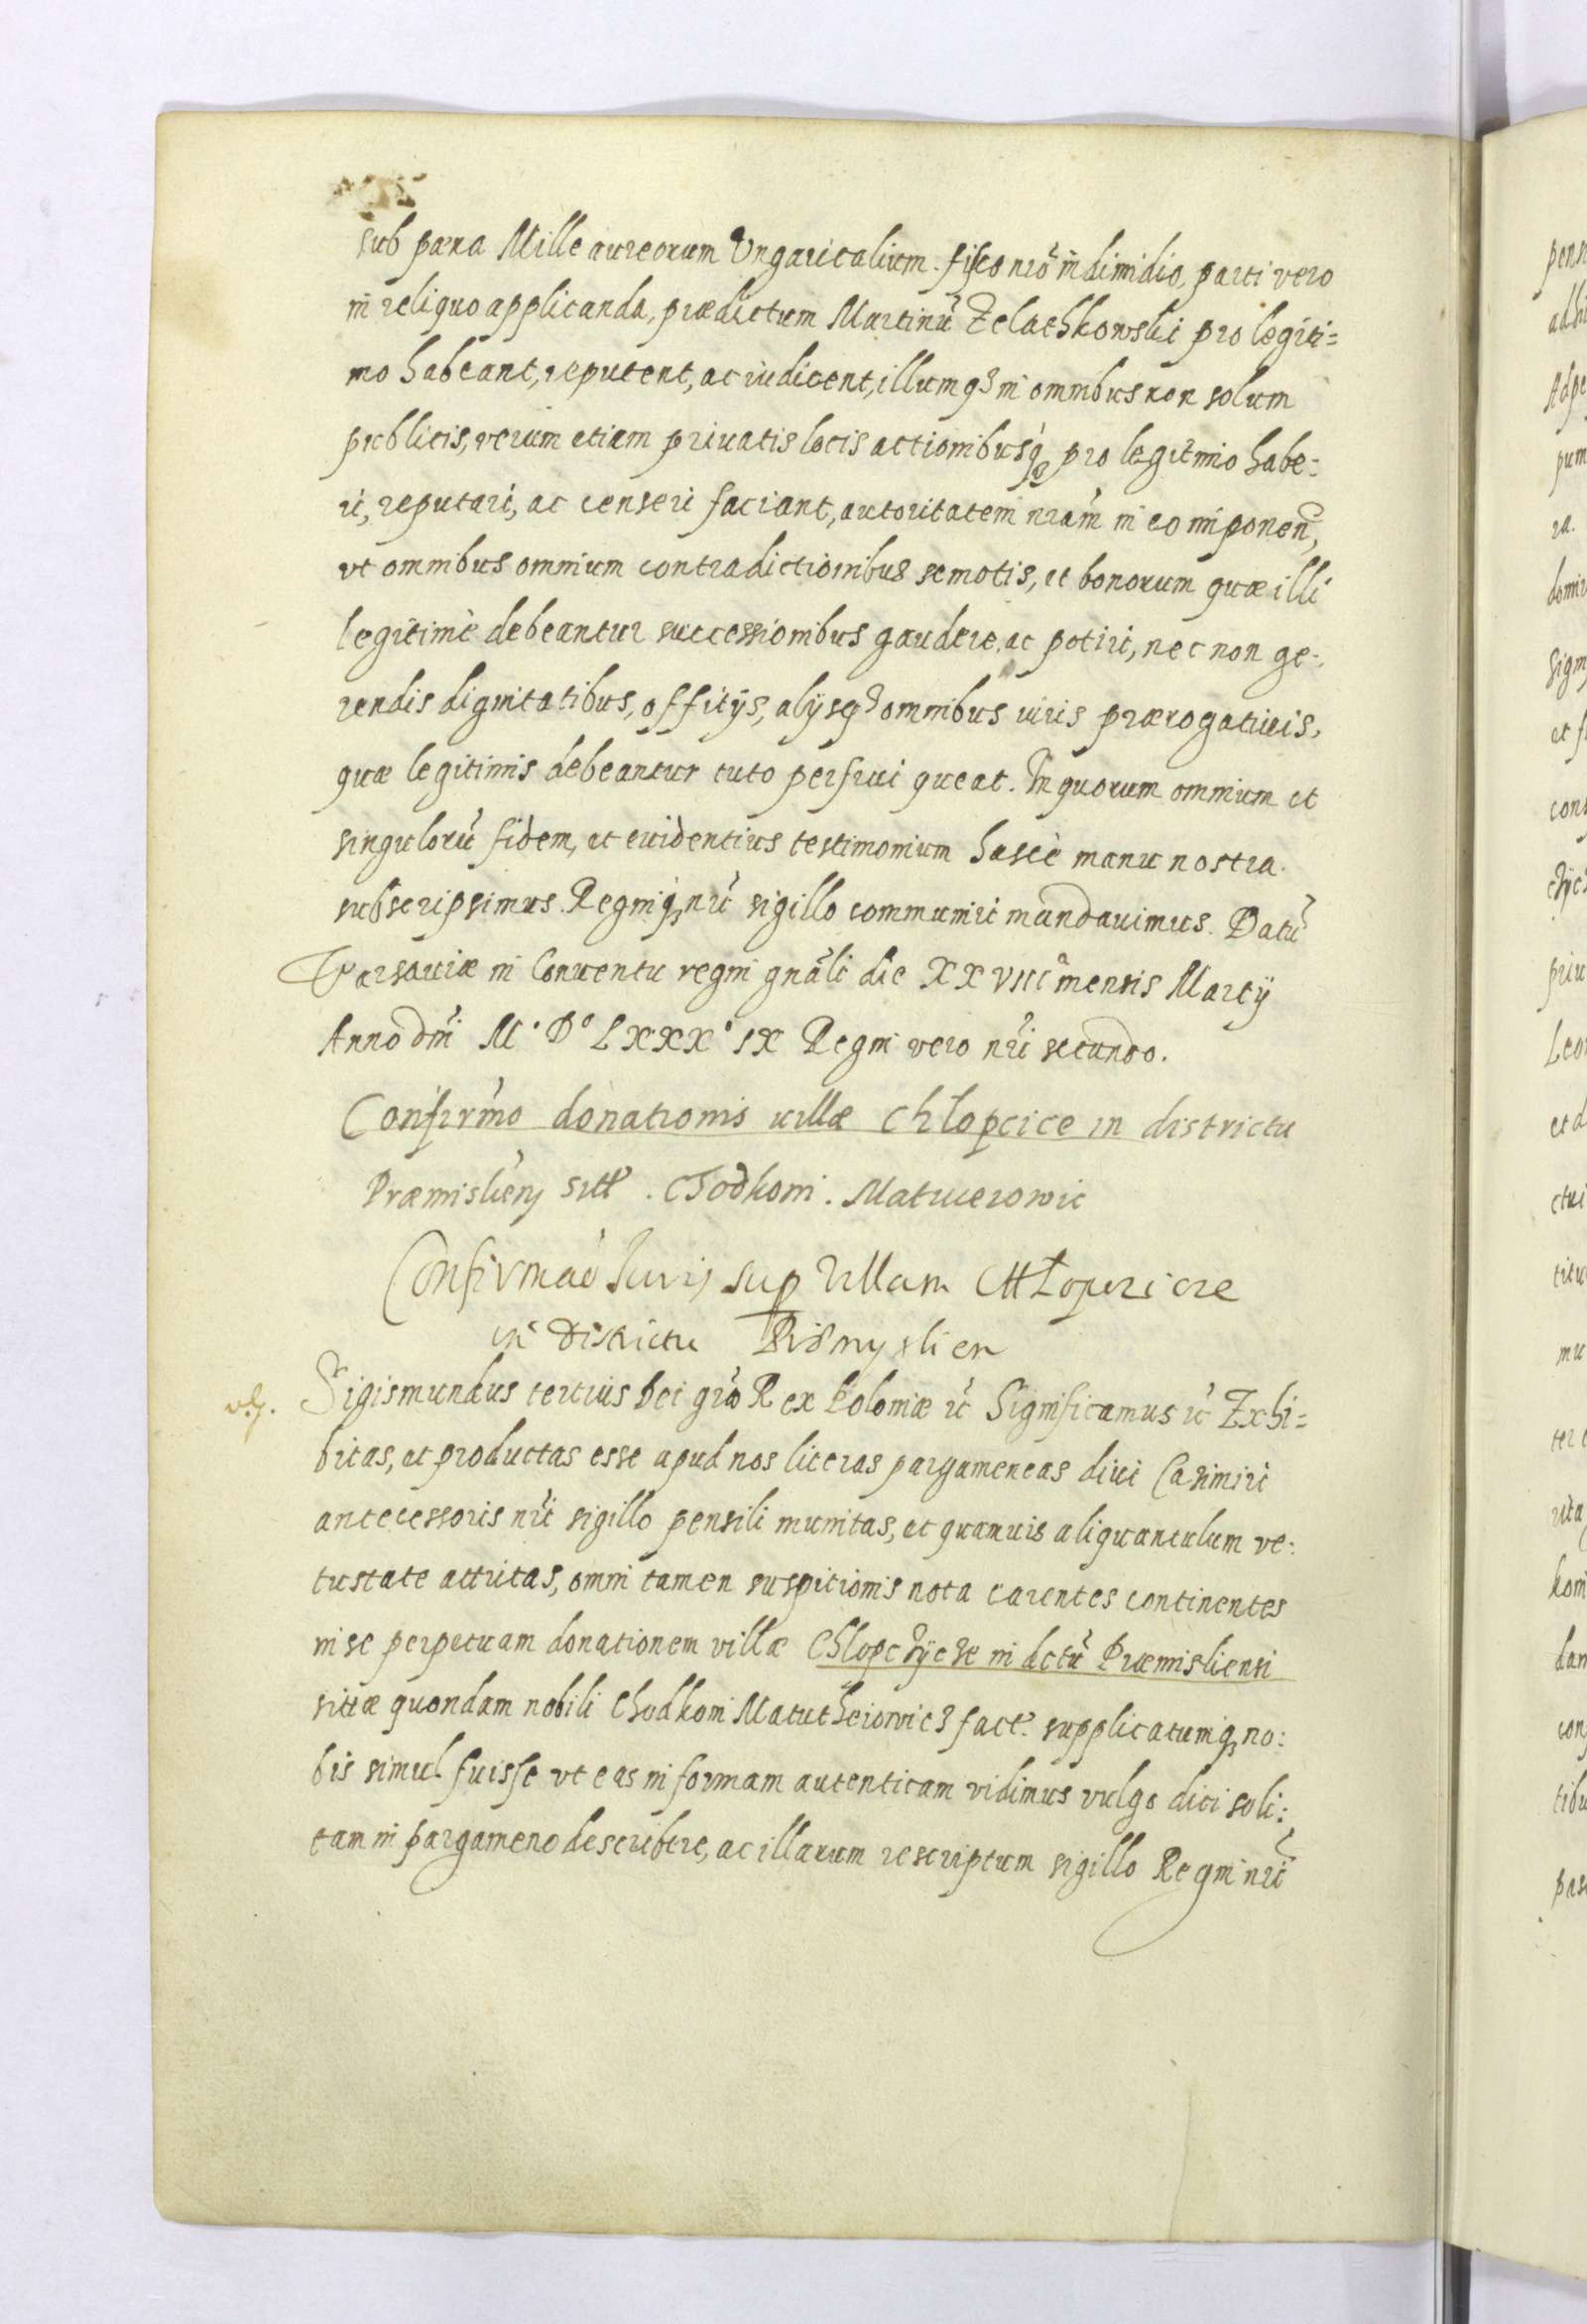 sub pæna Mille aureorum Ungaricalium. fisco nr̃o in dimidio, parti vero
in reliquo applicanda, prædictum Martinũ Zelachkowski pro legiti=
mo habeant, reputent, ac iudicent, illumq3 in omnibus non solum
publicis, verum etiam priuatis locis actionibusq3 pro legitimo habe:
ri, reputari, ac censeri faciant, autoritatem nr̃am in eo imponeñ,
vt omnibus omnium contradictionibus semotis, et bonorum quæ illi
legitimè debeantur successionibus gaudere, ac potiri, nec non ge:
rendis dignitatibus, offitijs, alijsq3 omnibus iuris prærogatiuis,
quæ legitimis debeantur tuto perfrui queat. In quorum omnium et
singulorũ fidem, et euidentius testimonium hascè manu nostra
subscripsimus. Regniq3 nr̃i sigillo communiri mandauimus. Datũ
Varsauiæ in Conuentu regni gnãli die XXVIIIa mensis Martij
Anno dñi M.° D° LXXX° IX Regni vero nr̃i secundo.
Confirm̃o donationis uillæ Chlopcice in districtu
Præmislieñ sitæ. Chodkoni. Matucerowic
Confirmaõ Juris sup Villam CHŁopczicze
in Districtu Pr̃myslien
Sigismundus tertius Dei gr̃a Rex Poloniæ r̃c Significamus r̃c Exhi=
bitas, et productas esse apud nos literas pargameneas diui Casimiri
antecessoris nr̃i sigillo pensili munitas, et quamuis aliquantulum ve:
tustate attritas, omni tamen suspitionis nota carentes continentes
in se perpetuam donationem villæ Chlopczycze in dctũ Præmisliensi
sitæ quondam nobili Chodkoni Matutheiowicz fact. supplicatumq3 no:
bis simul fuisse vt eas in formam autenticam vidimus vulgo dici soli:
tam in pargameno describere, ac illarum rescriptum sigillo Regni nr̃i